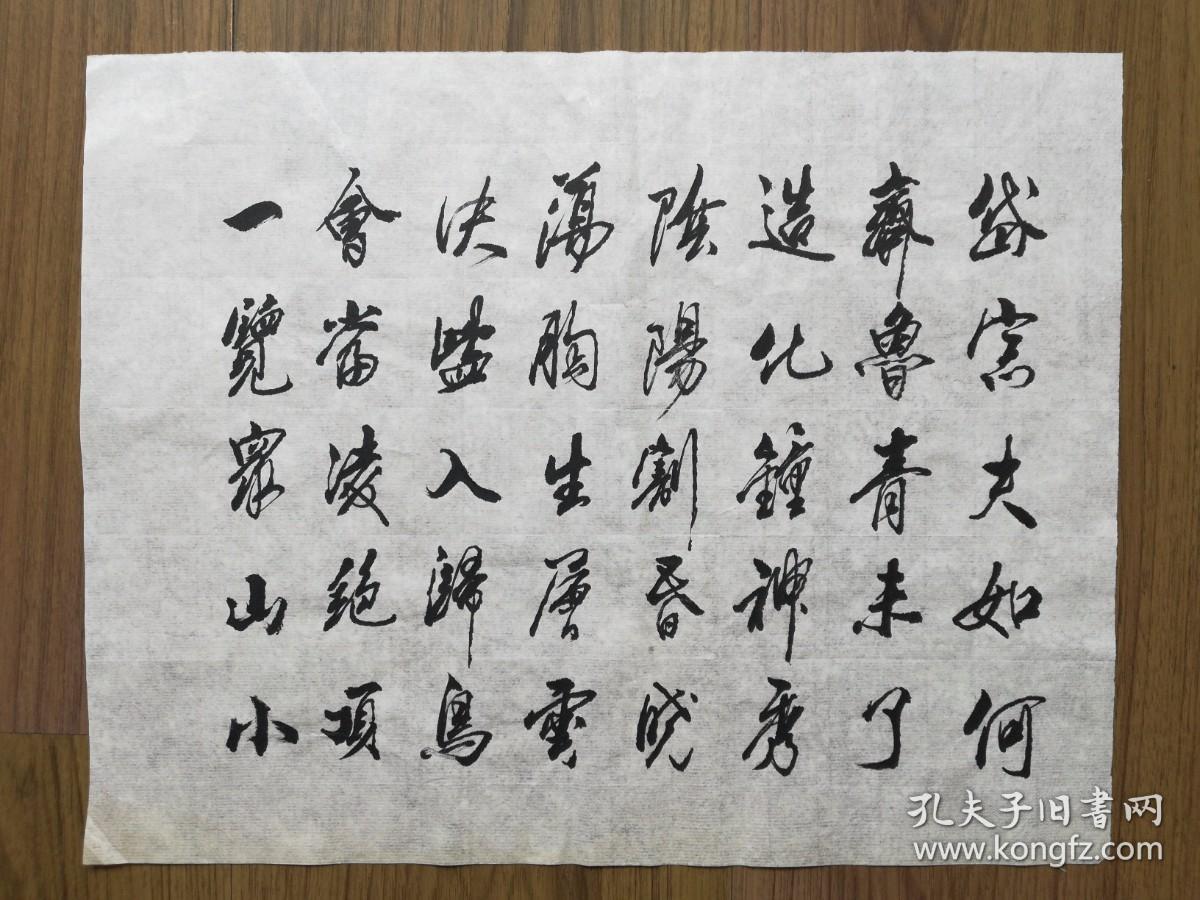 岱宗夫如何
齊魯青未了
造化鍾神秀
陰陽割昏曉
蕩胸生層雲
決眥入歸鳥
會當凌絕頂
一覽眾山小
孔夫子旧書网
www.kongfz.com